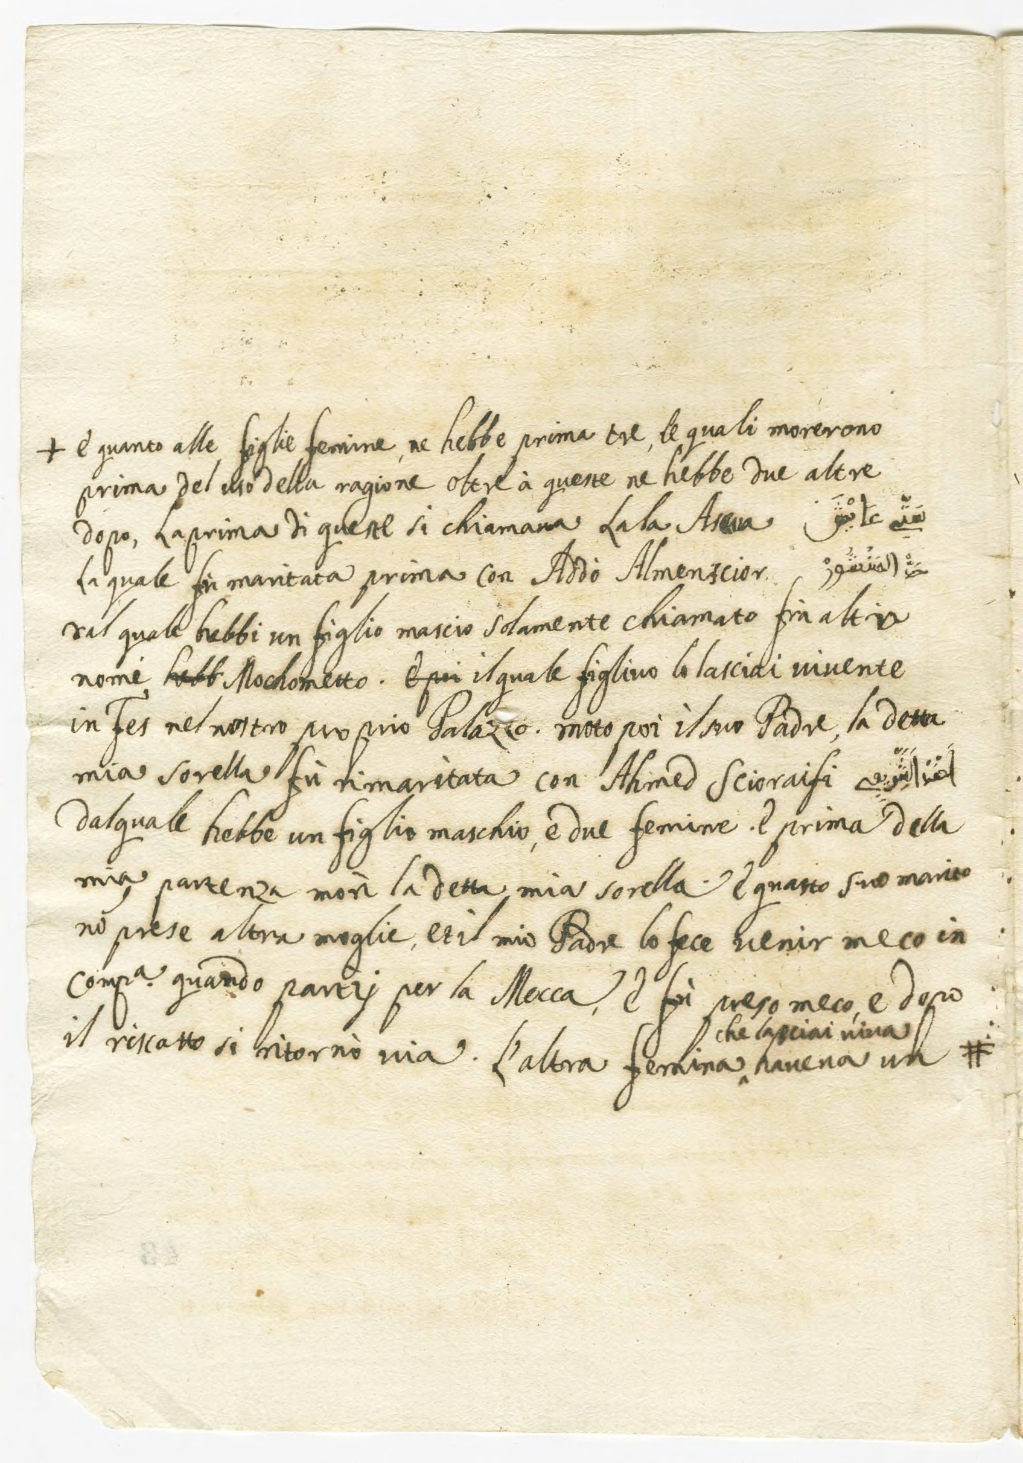 + è quanto alle figlie femine, ne hebbe prima tre, le quali morerono
prima del uso della ragione oltre à queste ne hebbe due altre
dopo, la prima di queste si chiamava Lala
la quale fù maritata prima con Addò Almenscior
dal quale hebbi un figlio mascio solamente chiamato frà altri
nomi, hebb Mochometto. È poi il quale figliuo lo lasciai vivente
in Fes nel nostro proprio Palazzo. moto poi il suo Padre, la detta
mia sorella fù rimaritata con Ahmed Scioraifi احمد الشريف
dal quale hebbe un figlio maschio, e due femine. è prima della
mia partenza morì la detta mia sorella. è questo suo marito
nò prese altra moglie, et il mio Padre lo fece venir meco in
compa. quando partij per la Mecca, è fù preso meco, e dopo
il riscatto si ritornò via. L'altra femina che lasciai viva haveva un #